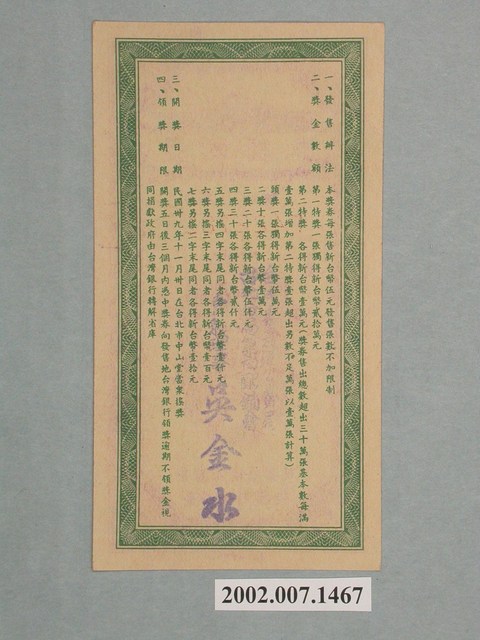 一、發售辦法　本獎券每張售新台幣伍元發售張數不加限制
二、獎金數額　第一特獎一張獨得新台幣貳拾萬元
第二特獎　各得新台幣壹萬元(獎券售出總數超出三十萬張基本數每滿
壹萬張增加第二特獎壹張超出另數不足萬張以壹萬張計算)
頭獎一張獨得新台幣伍萬元
二獎十張各得新台幣壹萬元
三獎二十張各得新台幣伍仟元
四獎三十張各得新台幣貳仟元
五獎另搖四字末尾同者各得新台幣壹仟元
六獎另搖三字末尾同者各得新台幣壹百元
七獎另搖二字末尾同者各得新台幣壹拾元
三、開獎日期　民國卅九年十一月卅日在台北市中山堂當衆搖獎
四、領獎期限　開獎五日後三個月內憑中獎券向發售地台灣銀行領獎逾期不領獎金視
同捐獻政府由台灣銀行轉解省庫
吳金水
2002.007.1467